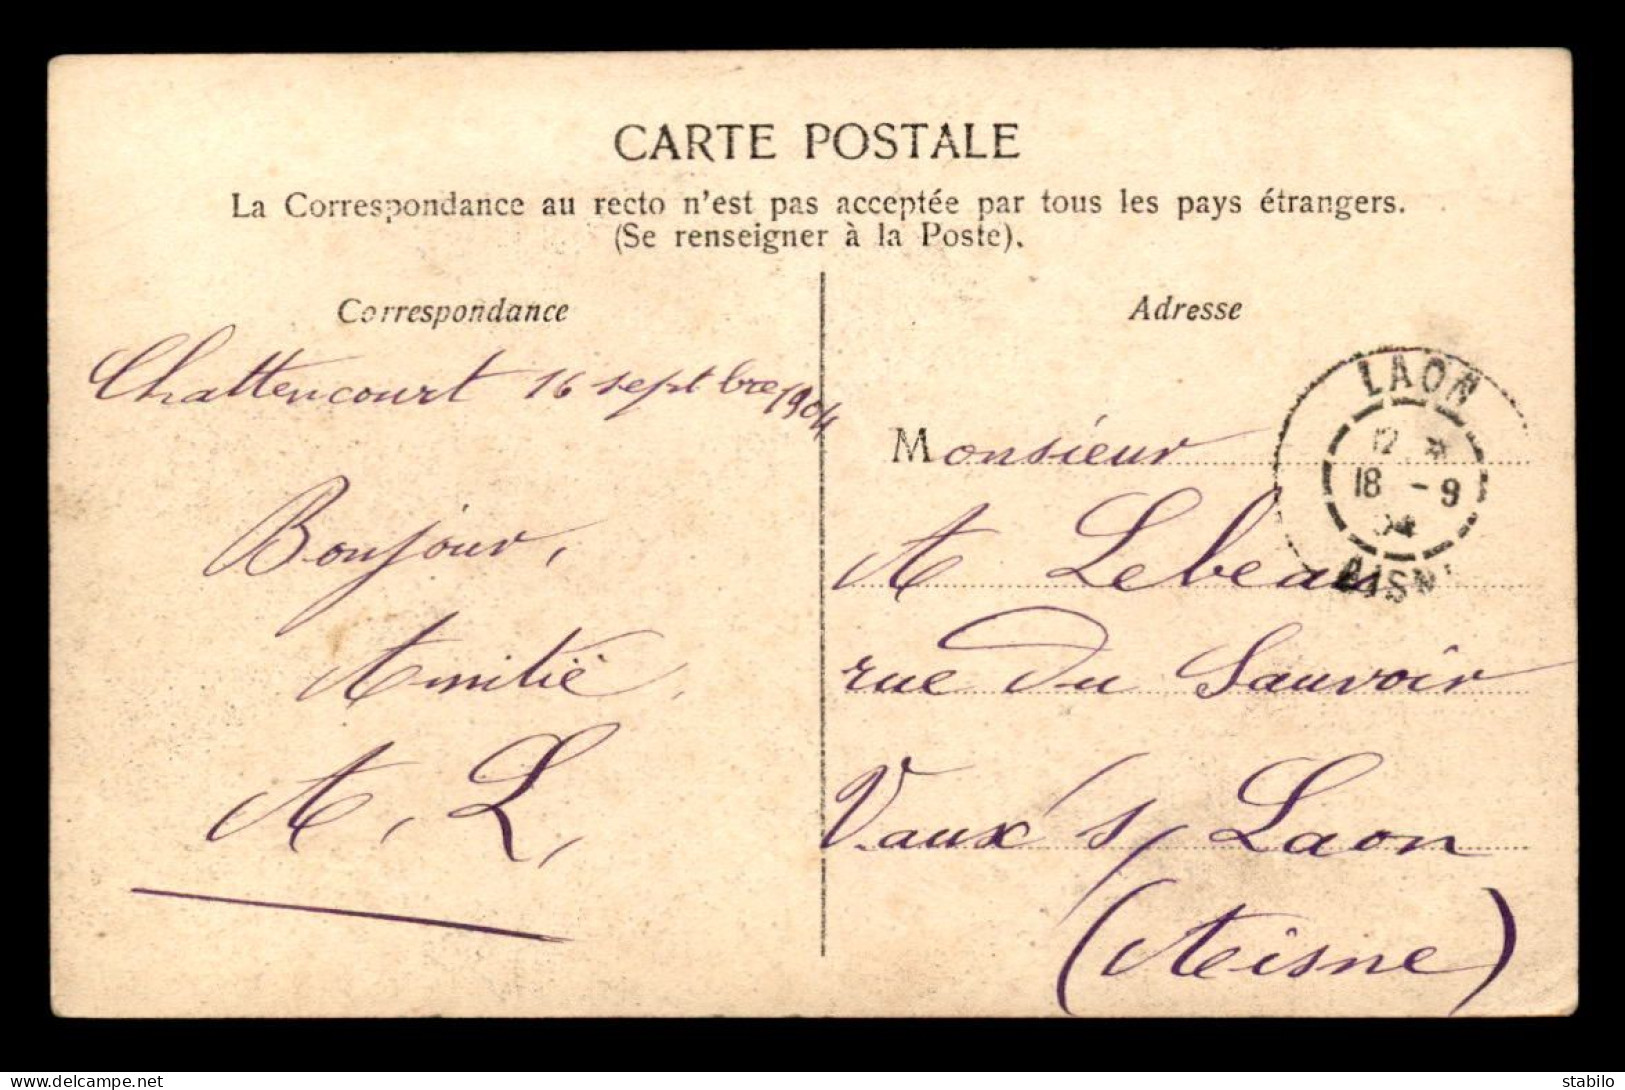 CARTE POSTALE
La Correspondance au recto n'est pas acceptée par tous les pays étrangers.
(Se renseigner à la Poste).
Correspondance
Chattencourt 16 septbre 1904
Bonjour,
Amitié,
A, L,
Adresse
Monsieur
A Lebeau
rue du Sauvoir
Vaux s/ Laon
(Aisne)
LAON
12 *
18 - 9
04
AISNE
delcampe.net
stabilo